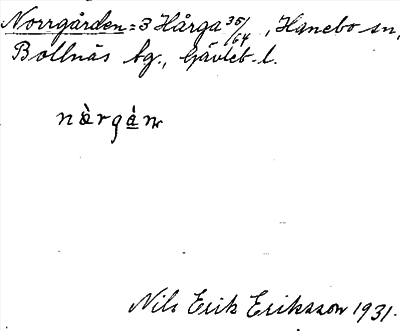 Norrgården = 3 Hårga 35/64, Hanebo sn,
Bollnäs bg., Gävleb. l.
nàrgán
Nils Erik Eriksson 1931.